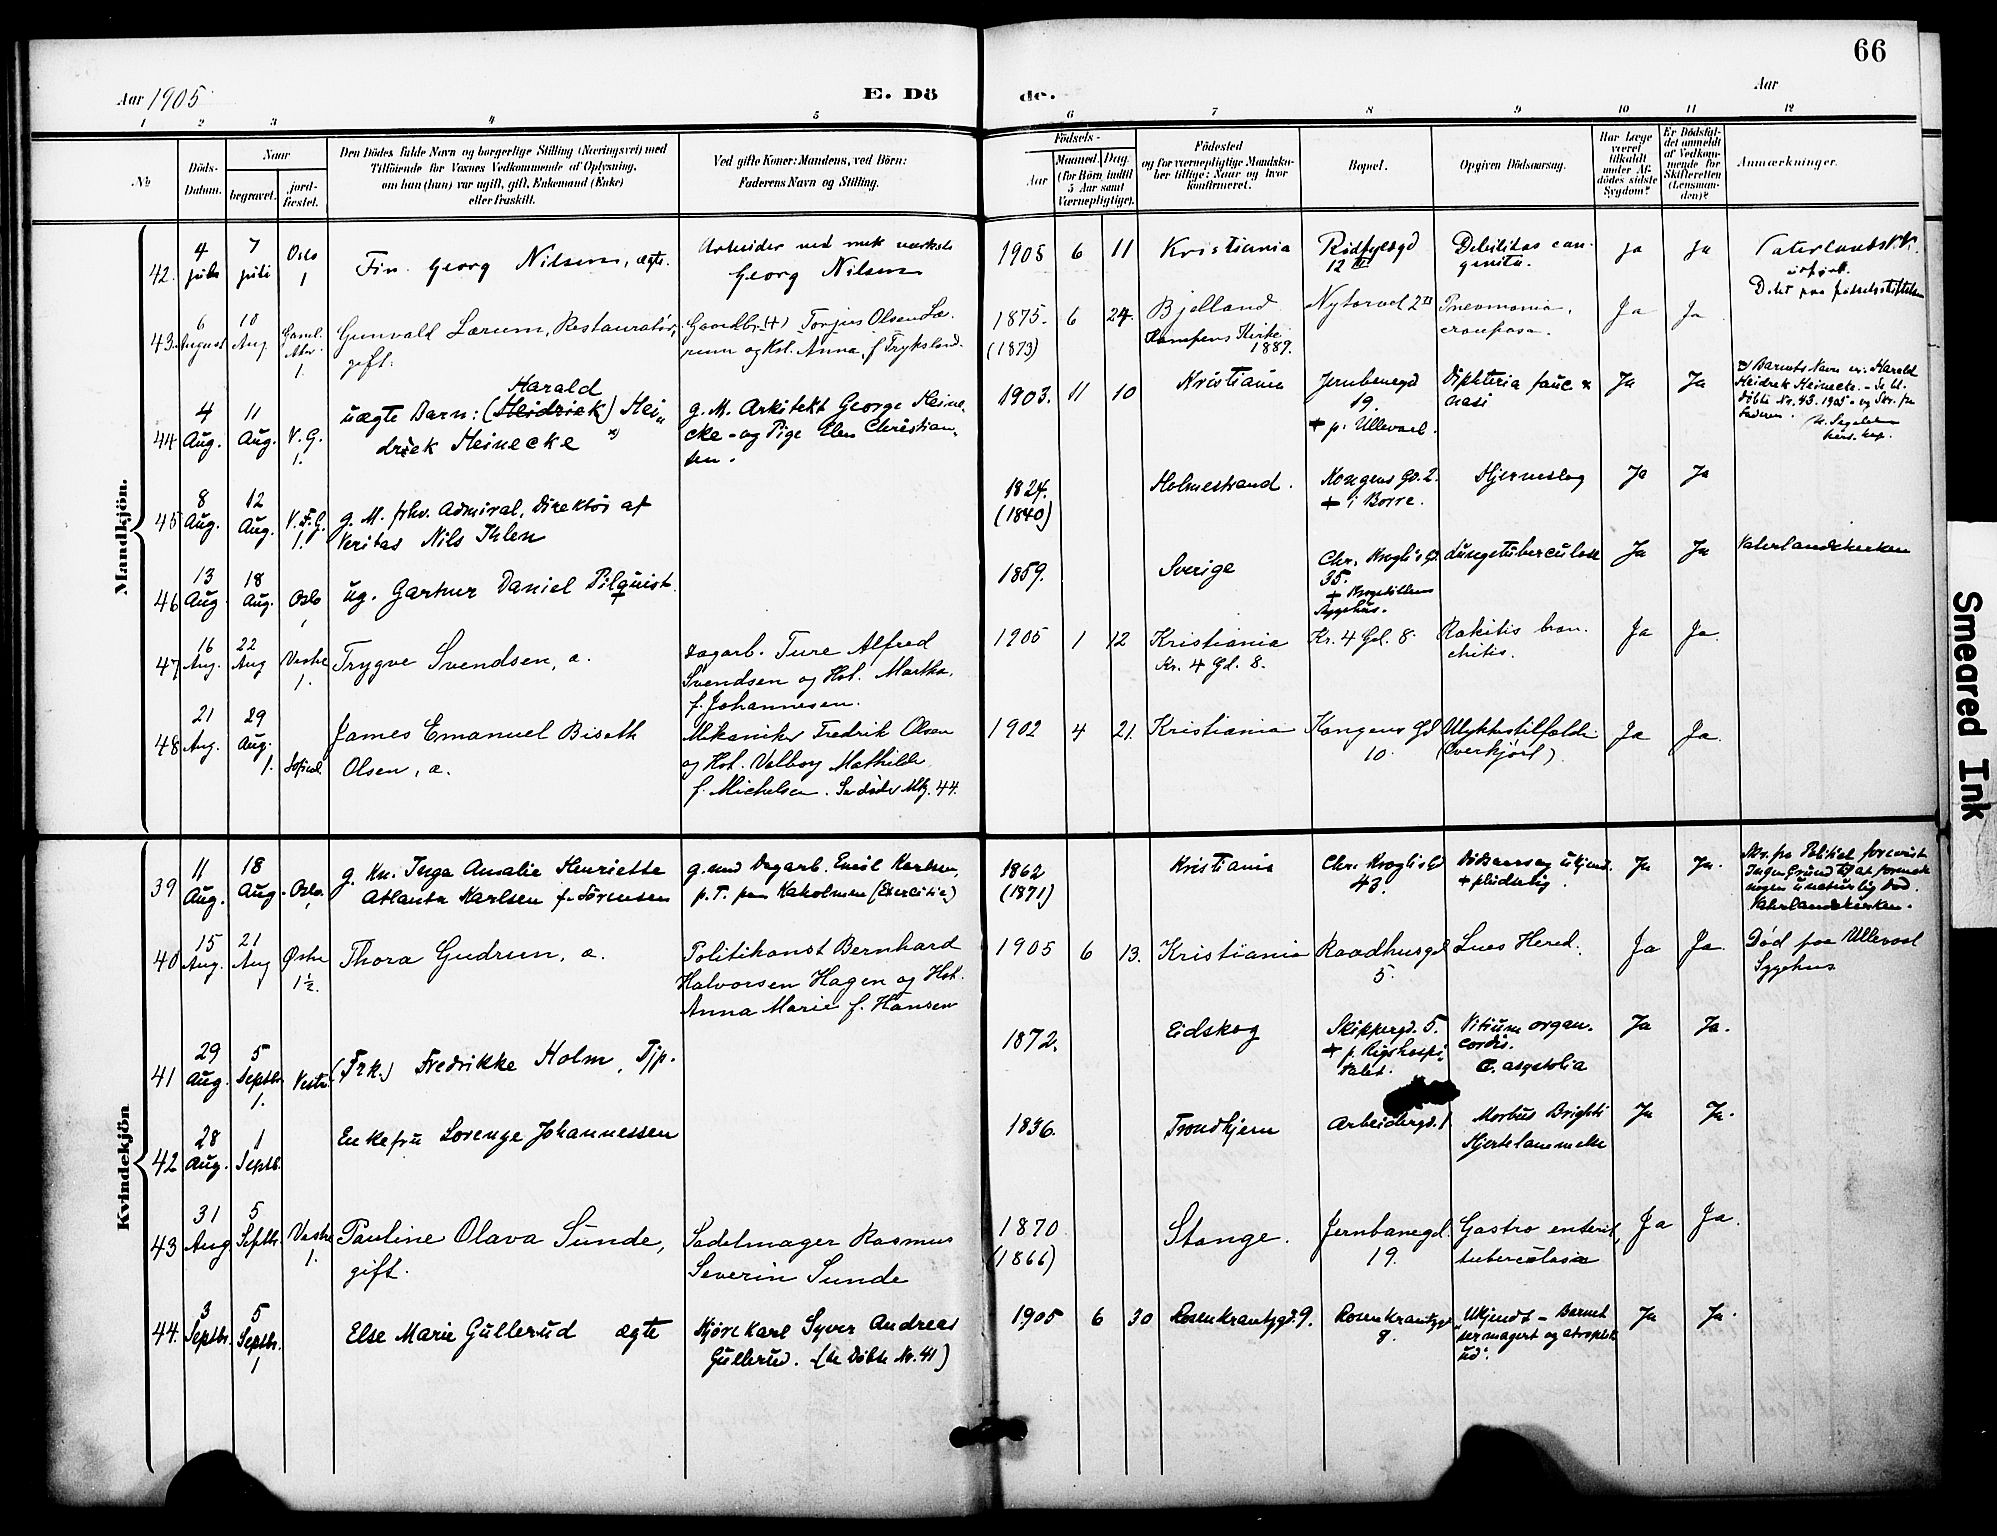 66
Aar 1905
E. Dö
de.
Aar
1 2 3 4 5 6 7 8 9 10 11 12
No
Döds-Datum.
Naar
begravet.
jord-fæstet.
Den Dödes fulde Navn og borgerlige Stilling (Næringsvei) med
Tilföiende for Voxnes Vedkommende af Oplysning,
om han (hun) var ugift, gift, Enkemand (Enke)
eller fraskilt.
Ved gifte Koner: Mandens, ved Börn:
Faderens Navn og Stilling.
Födsels-
Aar
Maaned. Dag.
(for Börn indtil
5 Aar samt
Værnepligtige).
Födested
og for værnepligtige Mandskaber tillige: Naar og hvor
konfirmeret.
Bopæl.
Opgiven Dödsaarsag.
Har Læge
været
tilkaldt
under Afdödes sidste
Sygdom?
Er Dödsfaldet anmeldt
af Vedkommende for
Skifteretten
(Lensmanden)?
Anmærkninger.
Mandkjön.
42. 4 juli 7 juli Oslo 1
Fin Georg Nilsen, ægte.
Arbeider ved mek værksted
Georg Nilsen
1905 6 11 Kristiania
12 III
Debilitas congenita.
ja ja
Død paa fødselsstiftelsen
43. 6 August 10 Aug Gaml. Akr. 1.
Gunvald Lærum, Restauratør,
gift.
Gaardbr. (+) Torjus Olsen Lærum og Kst. Anna f. Fryksland.
1875. 6 24. Bjelland
(1873) Kampens Kirke
1889.
Nytorvet 2 II
Pneumonia
crouposa.
Ja Ja
44 4 Aug. 11 Aug. V.G. 1.
uægte Barn: (Heidrick) Harald Heidrick Heinecke x)
g. M. Arkitekt George Heinecke - og Pige Elen Christiansen.
1903. 11 10 Kristiania
Jernbanegd
19.
+ p. Ullevaal.
Diphteria fauc &
nasi
Ja Ja
x) Barnets Navn er: Harald
Heidrek Heinecke. - Se bl.
døbte Nr. 43. 1905 - og Skr. fra
Faderen.
45 8 Aug. 12 Aug. V.F.G. 1.
g. M. fhv. Admiral, Direktør af
Veritas Nils Ihlen
1824.
(1840)
Holmestrand.
Kongens Gd. 2.
+ i Borre.
Hjerneslag
Ja Ja
46 13 Aug 18 Aug. Oslo
ug. Gartner Daniel Pilquist.
1859. Sverige
Chr. Kroghs Gd.
35.
+ Krogstøttens
Sygehus.
Lungetuberculose
Ja Ja
Vaterlandskirken
47 16 Aug. 22 Aug Vestre 1.
Trygve Svendsen, æ.
Dagarb. Ture Alfred
Svendsen og Hst. Martha,
f. Johannesen.
1905 1 12 Kristiania
Kr. 4 Gd. 8.
Kr. 4 Gd. 8.
Rakitis bronchitis.
Ja Ja.
48 21 Aug. 29 Aug. 1.
James Emanuel Biseth
Olsen, æ.
Mekaniker Fredrik Olsen
og Hst. Valborg Mathilde
f. Michelsen. Se døde Mk. 44.
1902 4 21. Kristiania
Kongens Gd
10.
Ulykkestilfælde
(Overkjørt).
Ja Ja.
Kvindekjön
39 11 Aug. 18 Aug. Oslo
g. Kn. Inga Amalie Henriette
Atlanta Karlsen f. Sørensen
g. med Dagarb. Emil Karlsen,
p. T. paa Kaholmen (Exercitie)
1862
(1871)
Kristiania
Chr. Kroghs Gd
43.
Dødsaarsag ukjend.
+ pludselig.
Ja Ja.
Skr. fra Politiet forevist
Ingen Grund til at formode
nogen unaturlig Død.
Vaterlandskirken.
40 15 Aug. 21 Aug Østre 1 1/2.
Thora Gudrun, æ.
Politikonst Bernhard
Halvorsen Hagen og Hst.
Anna Marie f. Hansen
1905 6 13. Kristiania
Raadhusgd
5.
Lues Hered.
Ja Ja.
Død paa Ullevaal
Sygehus
41 29 Aug. 5 Septbr. 1. Vestre
(Frk.) Fredrikke Holm, Tjp.
1872. Eidskog
Skippergd. 5.
+ p. Rigshospitalet.
Vitium organ.
cordis.
C. asystolia
Ja Ja.
42 28 Aug. 1 Septb.
Enkefru Lorenze Johannessen
1836. Trondhjem
Arbeidergd. 1
Morbus Brightii
Hjertelammelse
Ja Ja.
43 31 Aug 5 Septbr. Vestre 1.
Pauline Olava Sunde,
gift.
Sadelmager Rasmus
Severin Sunde
1870
(1866)
Stange.
Jernbanegd.
19.
Gastro enterit,
tuberculosa
Ja Ja.
44. 3 Septbr. 5 Septbr. 1
Else Marie Gullerud ægte
Kjørekarl Syver Andreas
Gullerud. (se Døbte Nr. 41)
1905 6 30 Rosenkrantzgd. 9.
Rosenkrantzgd
8.
Ukjendt - Barnet
ser magert og atrofisk
ud.
Ja Ja.
Smeared Ink